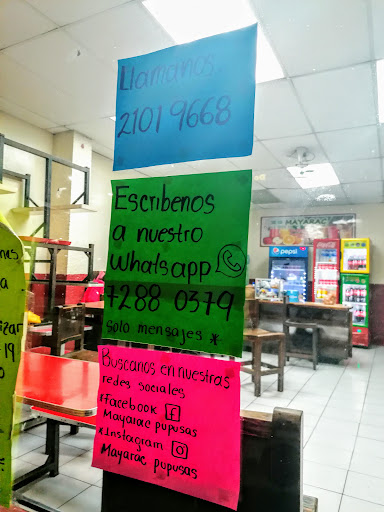 Llamanos
2101 9668
Escribenos
a nuestro
whatsapp
7288 0379
solo mensajes *
Buscanos en nuestras
redes sociales
*Facebook
Mayarac pupusas
*Instagram
Mayarac pupusas
MAYARAC
pepsi